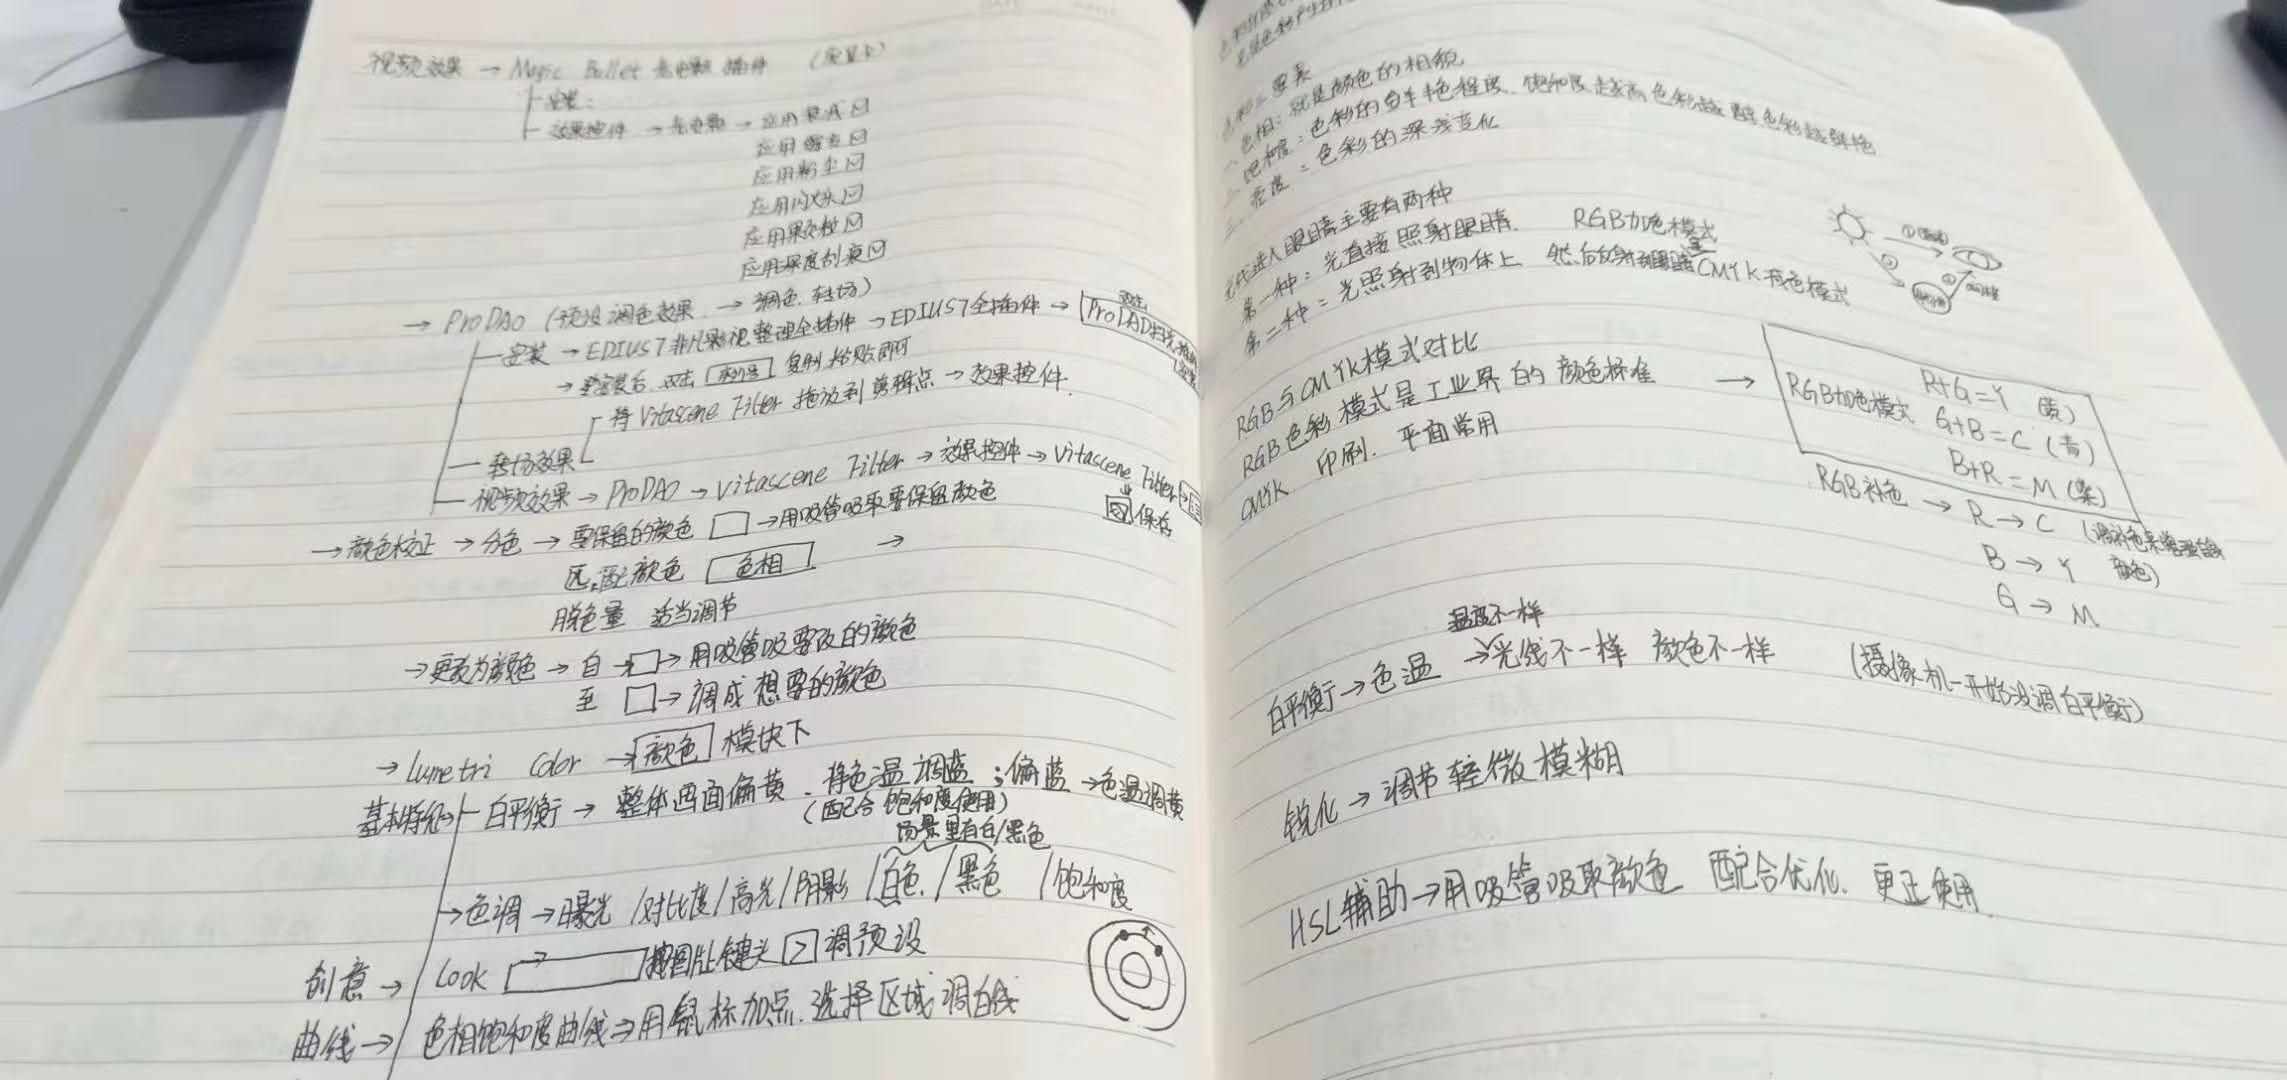 视频效果 → Magic Bullet 插件
安装:
效果控件 → → 应用
应用
应用粉尘
应用闪烁
应用颗粒
应用深度刮痕
→ ProDAD (预设调色效果 → 调色.转场)
安装 → EDIUS7非凡影视整理全插件 → EDIUS7全插件 → 双击 ProDAD
→ 安装后.双击 序列号 复制粘贴即可
将 Vitascene Filter 拖放到剪辑点 → 效果控件.
转场效果
视频效果 → ProDAD → Vitascene Filter → 效果控件 → Vitascene Filter →
保存
→ 颜色校正 → 分色 → 要保留的颜色 □ → 用吸管吸取要保留颜色
匹配颜色 色相 →
脱色量 适当调节
→ 更改为颜色 → 自 → □ → 用吸管吸要改的颜色
至 □ → 调成想要的颜色
→ Lumetri Color → 颜色 模块下
基本特征 → 白平衡 → 整体画面偏黄.将色温调蓝;偏蓝 → 色温调黄
(配合饱和度使用)
场景里有白/黑色
→ 色调 → 曝光/对比度/高光/阴影/白色/黑色/饱和度
创意 → Look 按图上键头 > 调预设
曲线 → 色相饱和度曲线 ⇒ 用鼠标加点.选择区域调白线
要素
一.色相:就是颜色的相貌
二.饱和度:色彩的 程度.饱和度越高色彩越 色彩越鲜艳
三.亮度:色彩的深浅变化
光线进入眼睛主要有两种
第一种:光直接照射眼睛. RGB加色模式
第二种:光照射到物体上 然后 CMYK 减色模式
RGB与CMYK模式对比
RGB色彩模式是工业界的颜色标准
CMYK 印刷.平面常用
→ RGB加色模式 R+G=Y (黄)
G+B=C (青)
B+R=M (紫)
RGB补色 → R → C (调补色来
B → Y 颜色)
G → M
温度不一样
白平衡 → 色温 → 光线不一样 颜色不一样 (摄像机一开始没调白平衡)
锐化 → 调节轻微模糊
HSL辅助 → 用吸管吸取颜色 配合优化.更正使用.